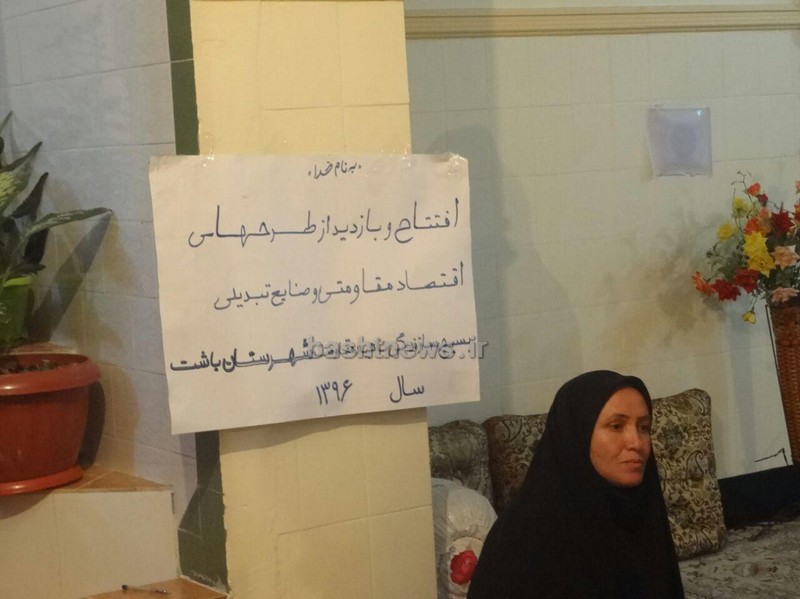 «به نام خدا»
افتتاح و بازدید از طرحهای
اقتصاد مقاومتی و صنایع تبدیلی
بسیج سازندگی شهرستان باشت
سال ۱۳۹۶
bashtnews.ir